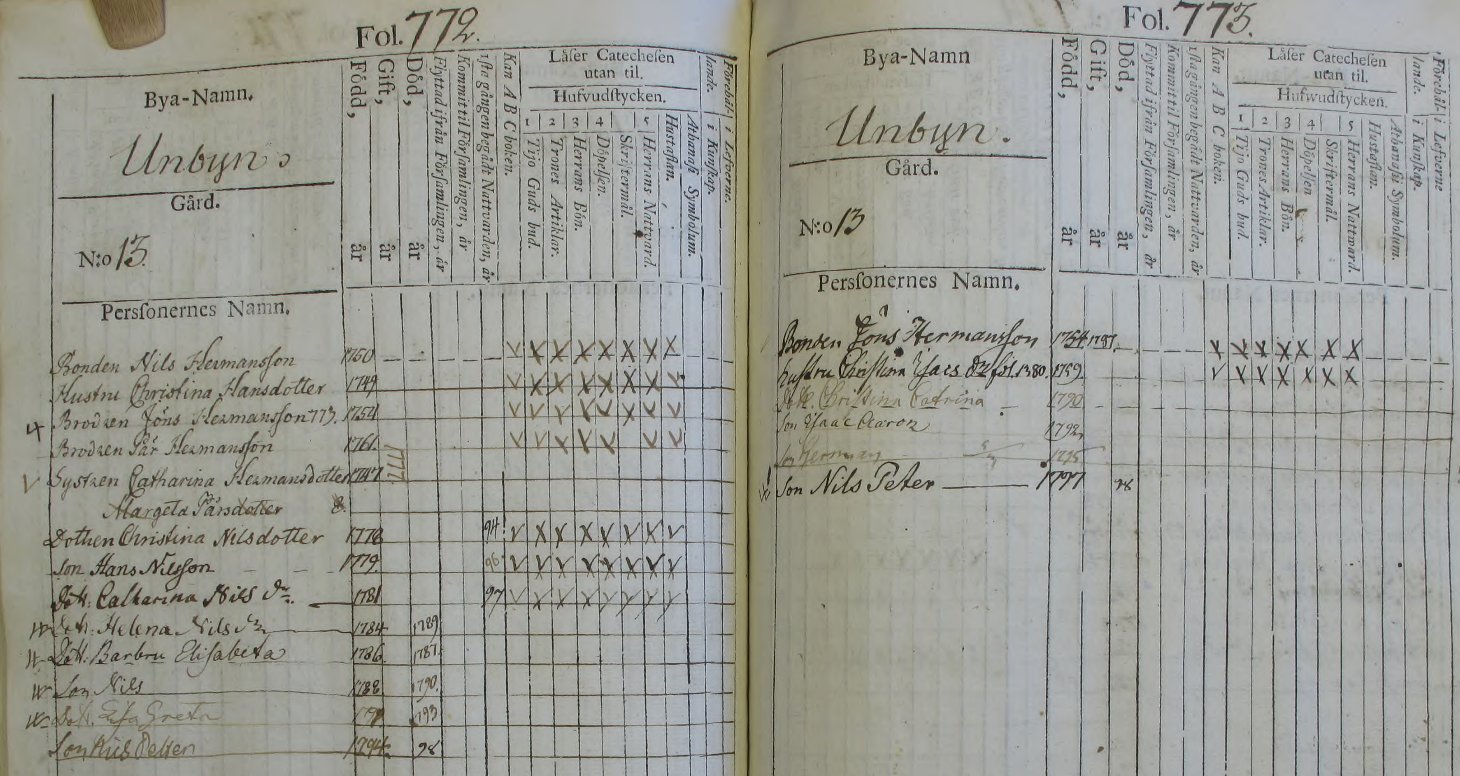 Fol. 772.
Bya-Namn.
Unbyn.
Gård.
N:o 13.
Persſonernes Namn.
Född, år
Gift, år
Död, år
Flyttad ifrån Förſamlingen, år
Kommit til Förſamlingen, år
iſta gången begådt Nattvarden, år
Kan A B C boken.
Låſer Catecheſen
utan til.
Hufvudſtycken.
1 2 3 4 5
Tijo Guds bud.
Trones Artiklar.
Herrans Bön.
Döpelſen.
Skriftermål.
Herrans Nattvard.
Huſtaflan.
Athanaſii Symbolum.
i Kunſkap.
i Lefverne.
Bonden Nils Hermansſon 1750
Hustru Christina Hansdotter 1749
Brodren Jöns Hermansſon 773. 1754
Brodren Pär Hermansſon 1761.
Systren Catharina Hermansdotter 1747 1777
Margeta Pärsdotter
Dottren Christina Nilsdotter 1778 94
Son Hans Nilsſon 1779 96
Dott. Catharina Nils dr. 1781 97
Dott. Helena Nils dr 1784 1789
Dott. Barbru Eliſabeta 1786 1787.
Son Nils 1788 1790.
Dott. Greta 1793
Son Petter 1794 98
Fol. 773.
Bya-Namn
Unbyn.
Gård.
N:o 13
Persſonernes Namn.
Född, år
Gift, år
Död, år
Flyttad ifrån Förſamlingen, år
Kommit til Förſamlingen, år
iſta gången begådt Nattvarden, år
Kan A B C boken.
Låſer Catecheſen
utan til.
Hufwudſtycken.
1 2 3 4 5
Tijo Guds bud.
Trones Artiklar.
Herrans Bön.
Döpelſen
Skriftermål.
Herrans Nattward.
Huſtaflan.
Athanaſii Symbolum.
i Kunſkap.
i Lefverne
Bonden Jöns Hermansſon 1754 1787.
hustru Christina Iſacs dr fol. 1380. 1759.
Dott. Christina Catrina 1790
Son Iſaac Aaron 1792
Son Herman 1795
Son Nils Peter 1797 98